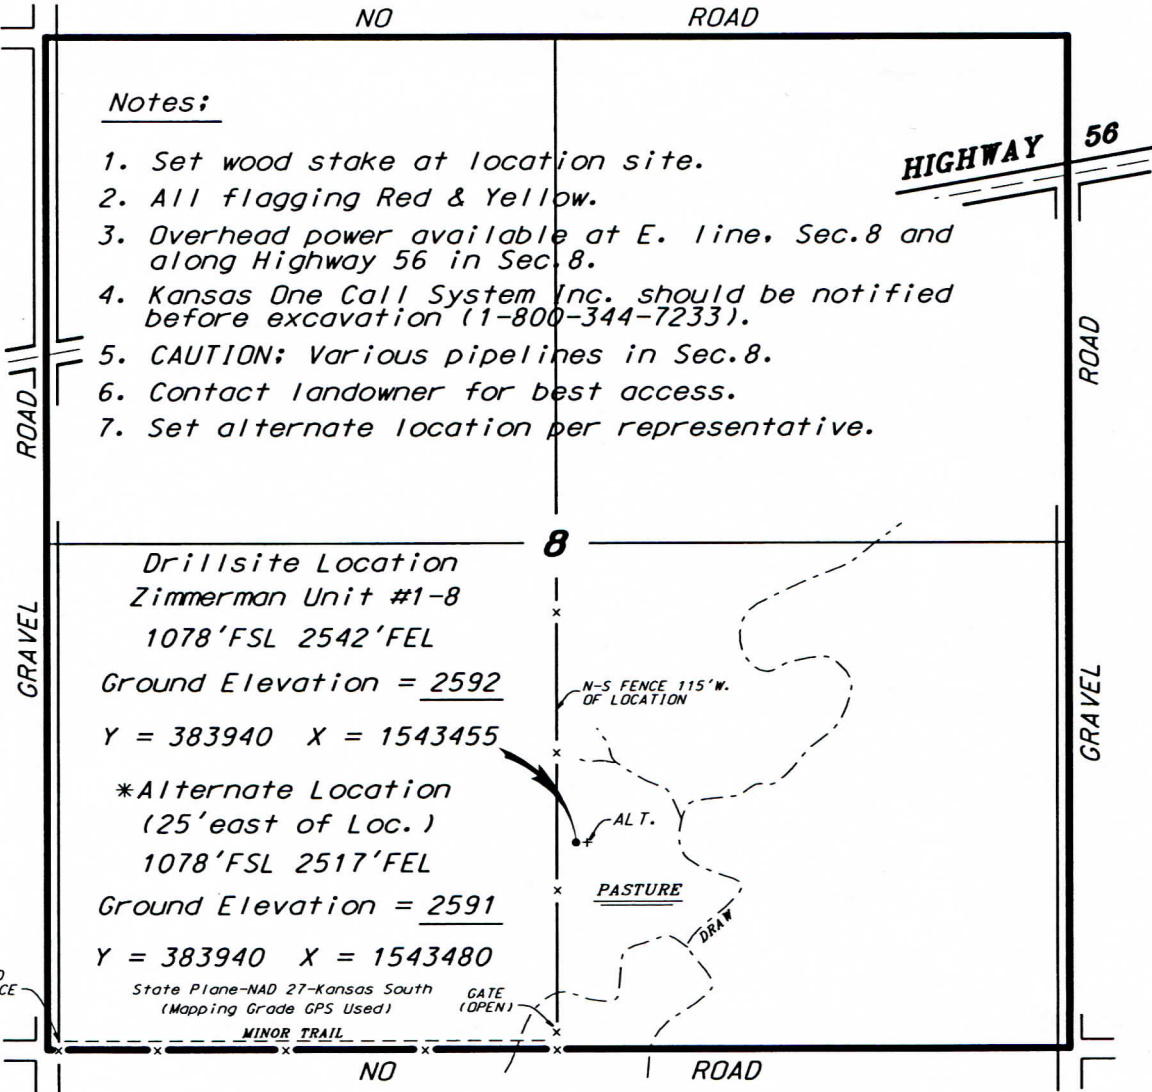 NO ROAD
Notes:
1. Set wood stake at location site.
2. All flagging Red & Yellow.
3. Overhead power available at E. line, Sec.8 and
along Highway 56 in Sec.8.
4. Kansas One Call System Inc. should be notified
before excavation (1-800-344-7233).
5. CAUTION: Various pipelines in Sec.8.
6. Contact landowner for best access.
7. Set alternate location per representative.
HIGHWAY 56
ROAD
ROAD
GRAVEL
GRAVEL
8
Drillsite Location
Zimmerman Unit #1-8
1078'FSL 2542'FEL
Ground Elevation = 2592
Y = 383940 X = 1543455
*Alternate Location
(25'east of Loc.)
1078'FSL 2517'FEL
Ground Elevation = 2591
Y = 383940 X = 1543480
State Plane-NAD 27-Kansas South
(Mapping Grade GPS Used)
MINOR TRAIL
GATE
(OPEN)
N-S FENCE 115'W.
OF LOCATION
ALT.
PASTURE
DRAW
NO ROAD